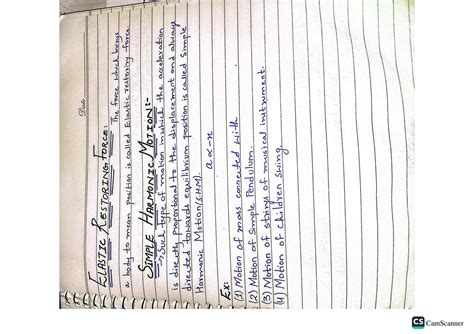 Date
ELASTIC RESTORING FORCE:
The force which brings
a body to mean position is called Elastic restoring force.
SIMPLE HARMONIC MOTION:-
→ Such type of motion in which the acceleration
is directly proportional to the displacement and always
directed towards equilibrium position is called Simple
Harmonic Motion (SHM).
a ∝ -x
Ex:
(1) Motion of mass connected with
(2) Motion of Simple Pendulum.
(3) Motion of strings of musical instrument.
(4) Motion of children Swing.
CS CamScanner